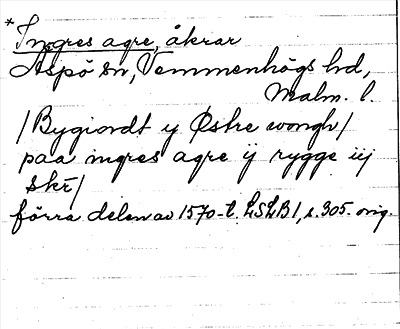 * Ingres agre, åkrar
Aspö sn, Vemmenhögs hd,
Malm. l.
/Bygiordt y Østre wongh/
paa ingres agre ÿ rygge iij
skr/
förra delen av 1570-t. LSLB1, s. 305. orig.